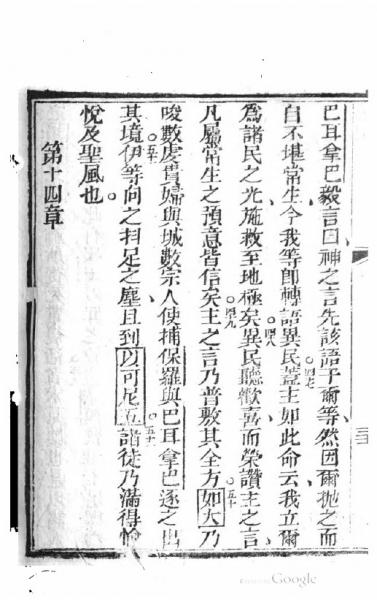 巴耳拿巴毅言曰神之言先該語于爾等然因爾抛之而
自不堪常生今我等即轉語異民蓋主如此命云我立爾
為諸民之光施救至地極矣異民聽歡喜而榮讚主之言
凡屬常生之預意皆信矣主之言乃普敷其全方如大乃
唆數虔貴婦與城數宗人使捕保羅與巴耳拿巴逐之出
其境伊等向之抖足之塵且到以可尼五諸徒乃滿得愉
悅及聖風也
第十四章
Google